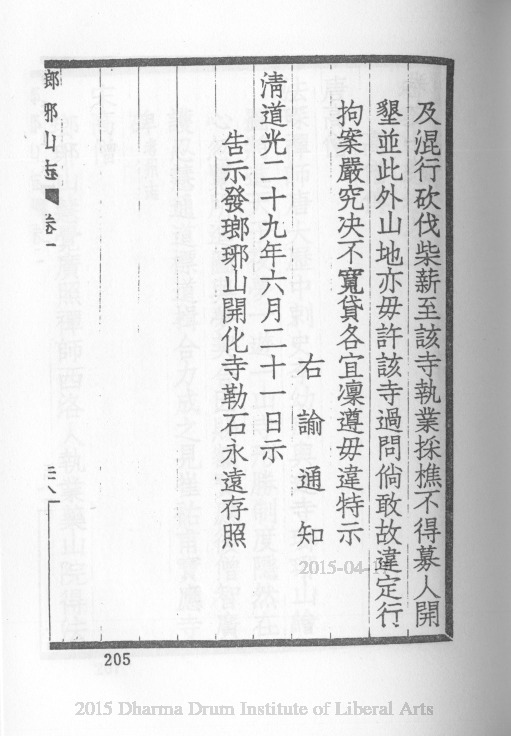 及混行砍伐柴薪至該寺執業採樵不得募人開
墾並此外山地亦毋許該寺過問倘敢故違定行
拘案嚴究决不寬貸各宜凜遵毋違特示
右諭通知
清道光二十九年六月二十 日示
告示發瑯琊山開化寺勒石永遠存照
瑯琊山志 卷一
205
2015-04-1
2015 Dharma Drum Institute of Liberal Arts